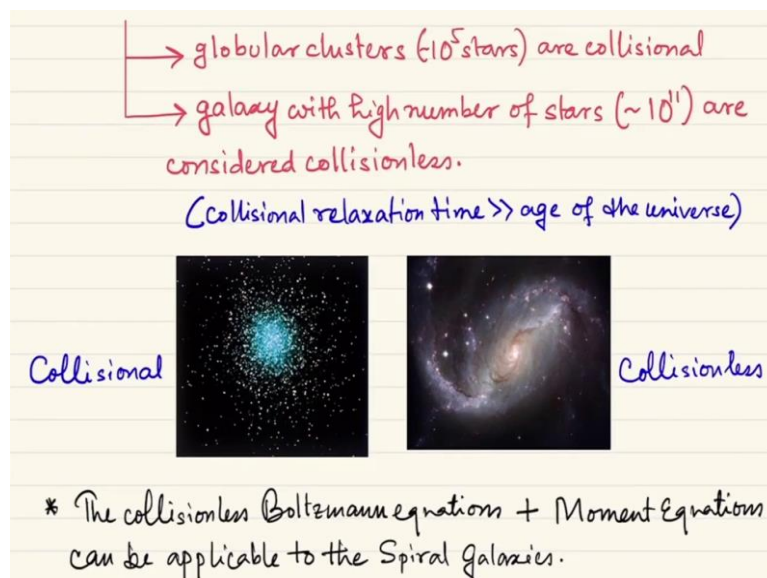 → globular clusters (~10⁵ stars) are collisional
→ galaxy with high number of stars (~10¹¹) are
considered collisionless.
(collisional relaxation time >> age of the universe)
Collisional
Collisionless
* The collisionless Boltzmann equations + Moment Equations
can be applicable to the Spiral Galaxies.